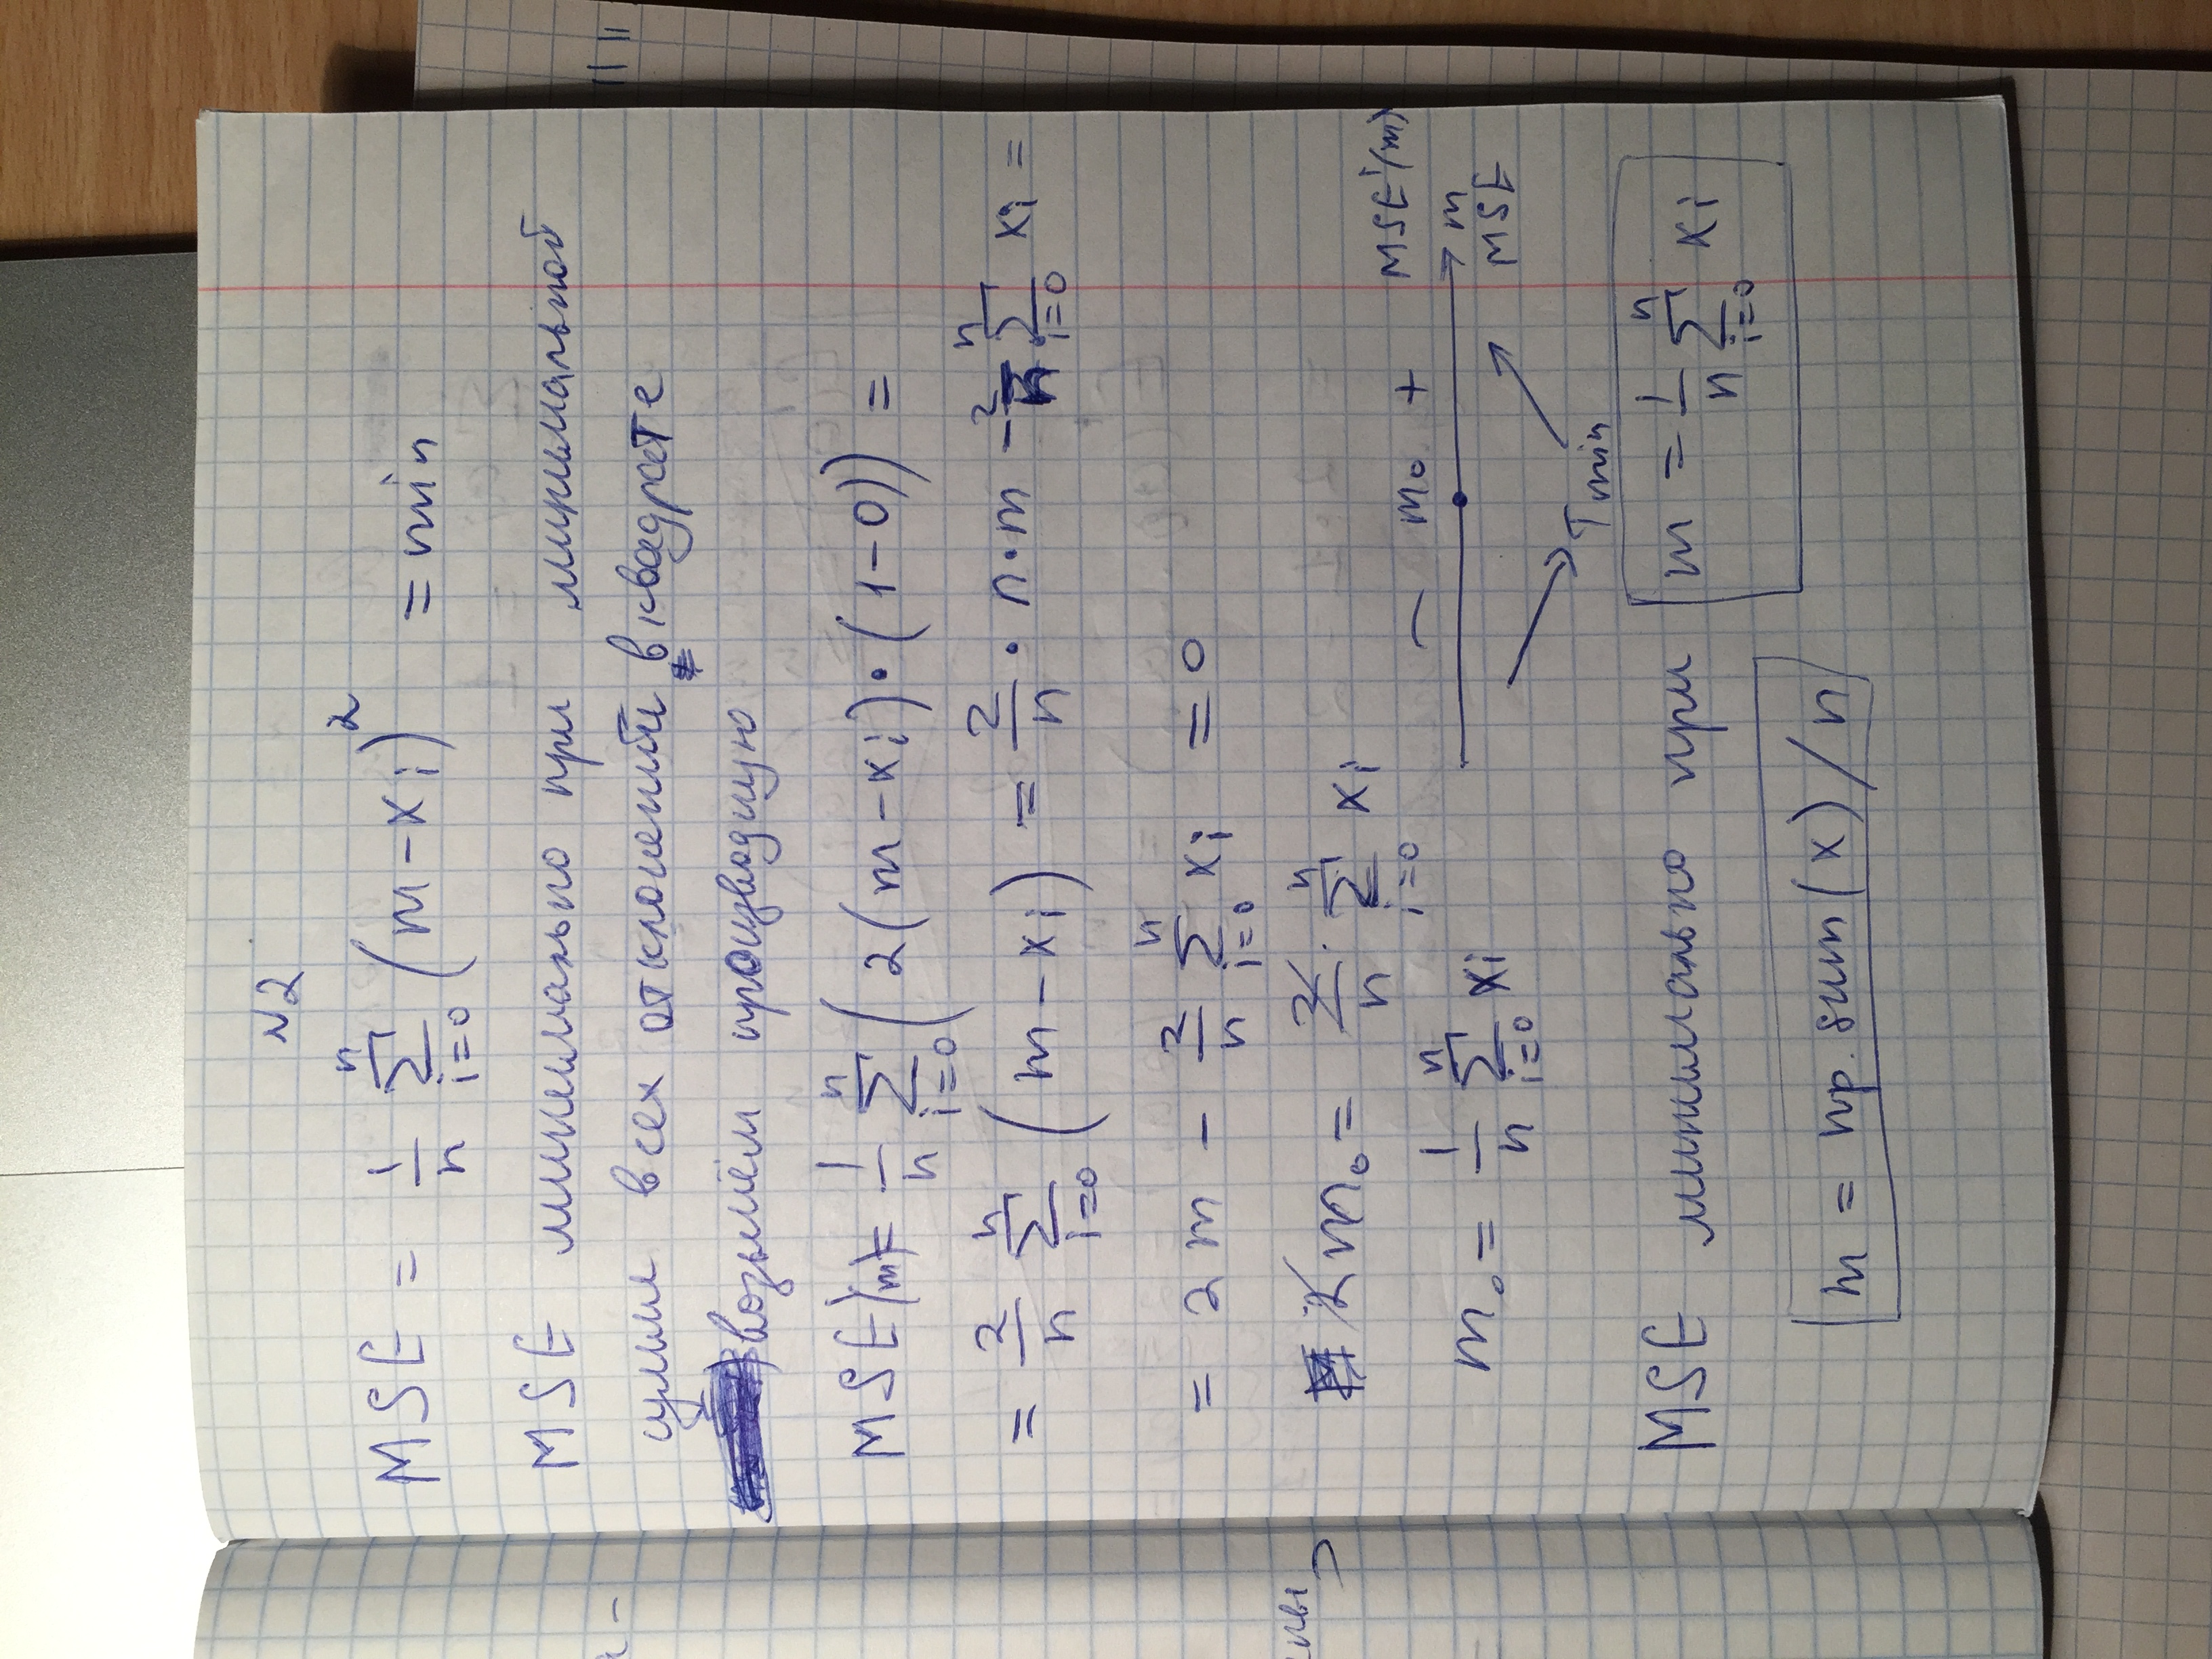 №2
MSE = 1/n ∑_{i=0}^{n} (m - x_i)^2 = min
MSE минимально при минимальной
сумме всех отклонений в квадрате
возьмём производную
MSE'(m) = 1/n ∑_{i=0}^{n} (2(m - x_i) · (1 - 0)) =
= 2/n ∑_{i=0}^{n} (m - x_i) = 2/n · n · m - 2/n ∑_{i=0}^{n} x_i =
= 2m - 2/n ∑_{i=0}^{n} x_i = 0
2m_0 = 2/n · ∑_{i=0}^{n} x_i
m_0 = 1/n ∑_{i=0}^{n} x_i
- m_0 + MSE'(m)
m
MSE
Tmin
MSE минимально при m = 1/n ∑_{i=0}^{n} x_i
m = np.sum(x)/n